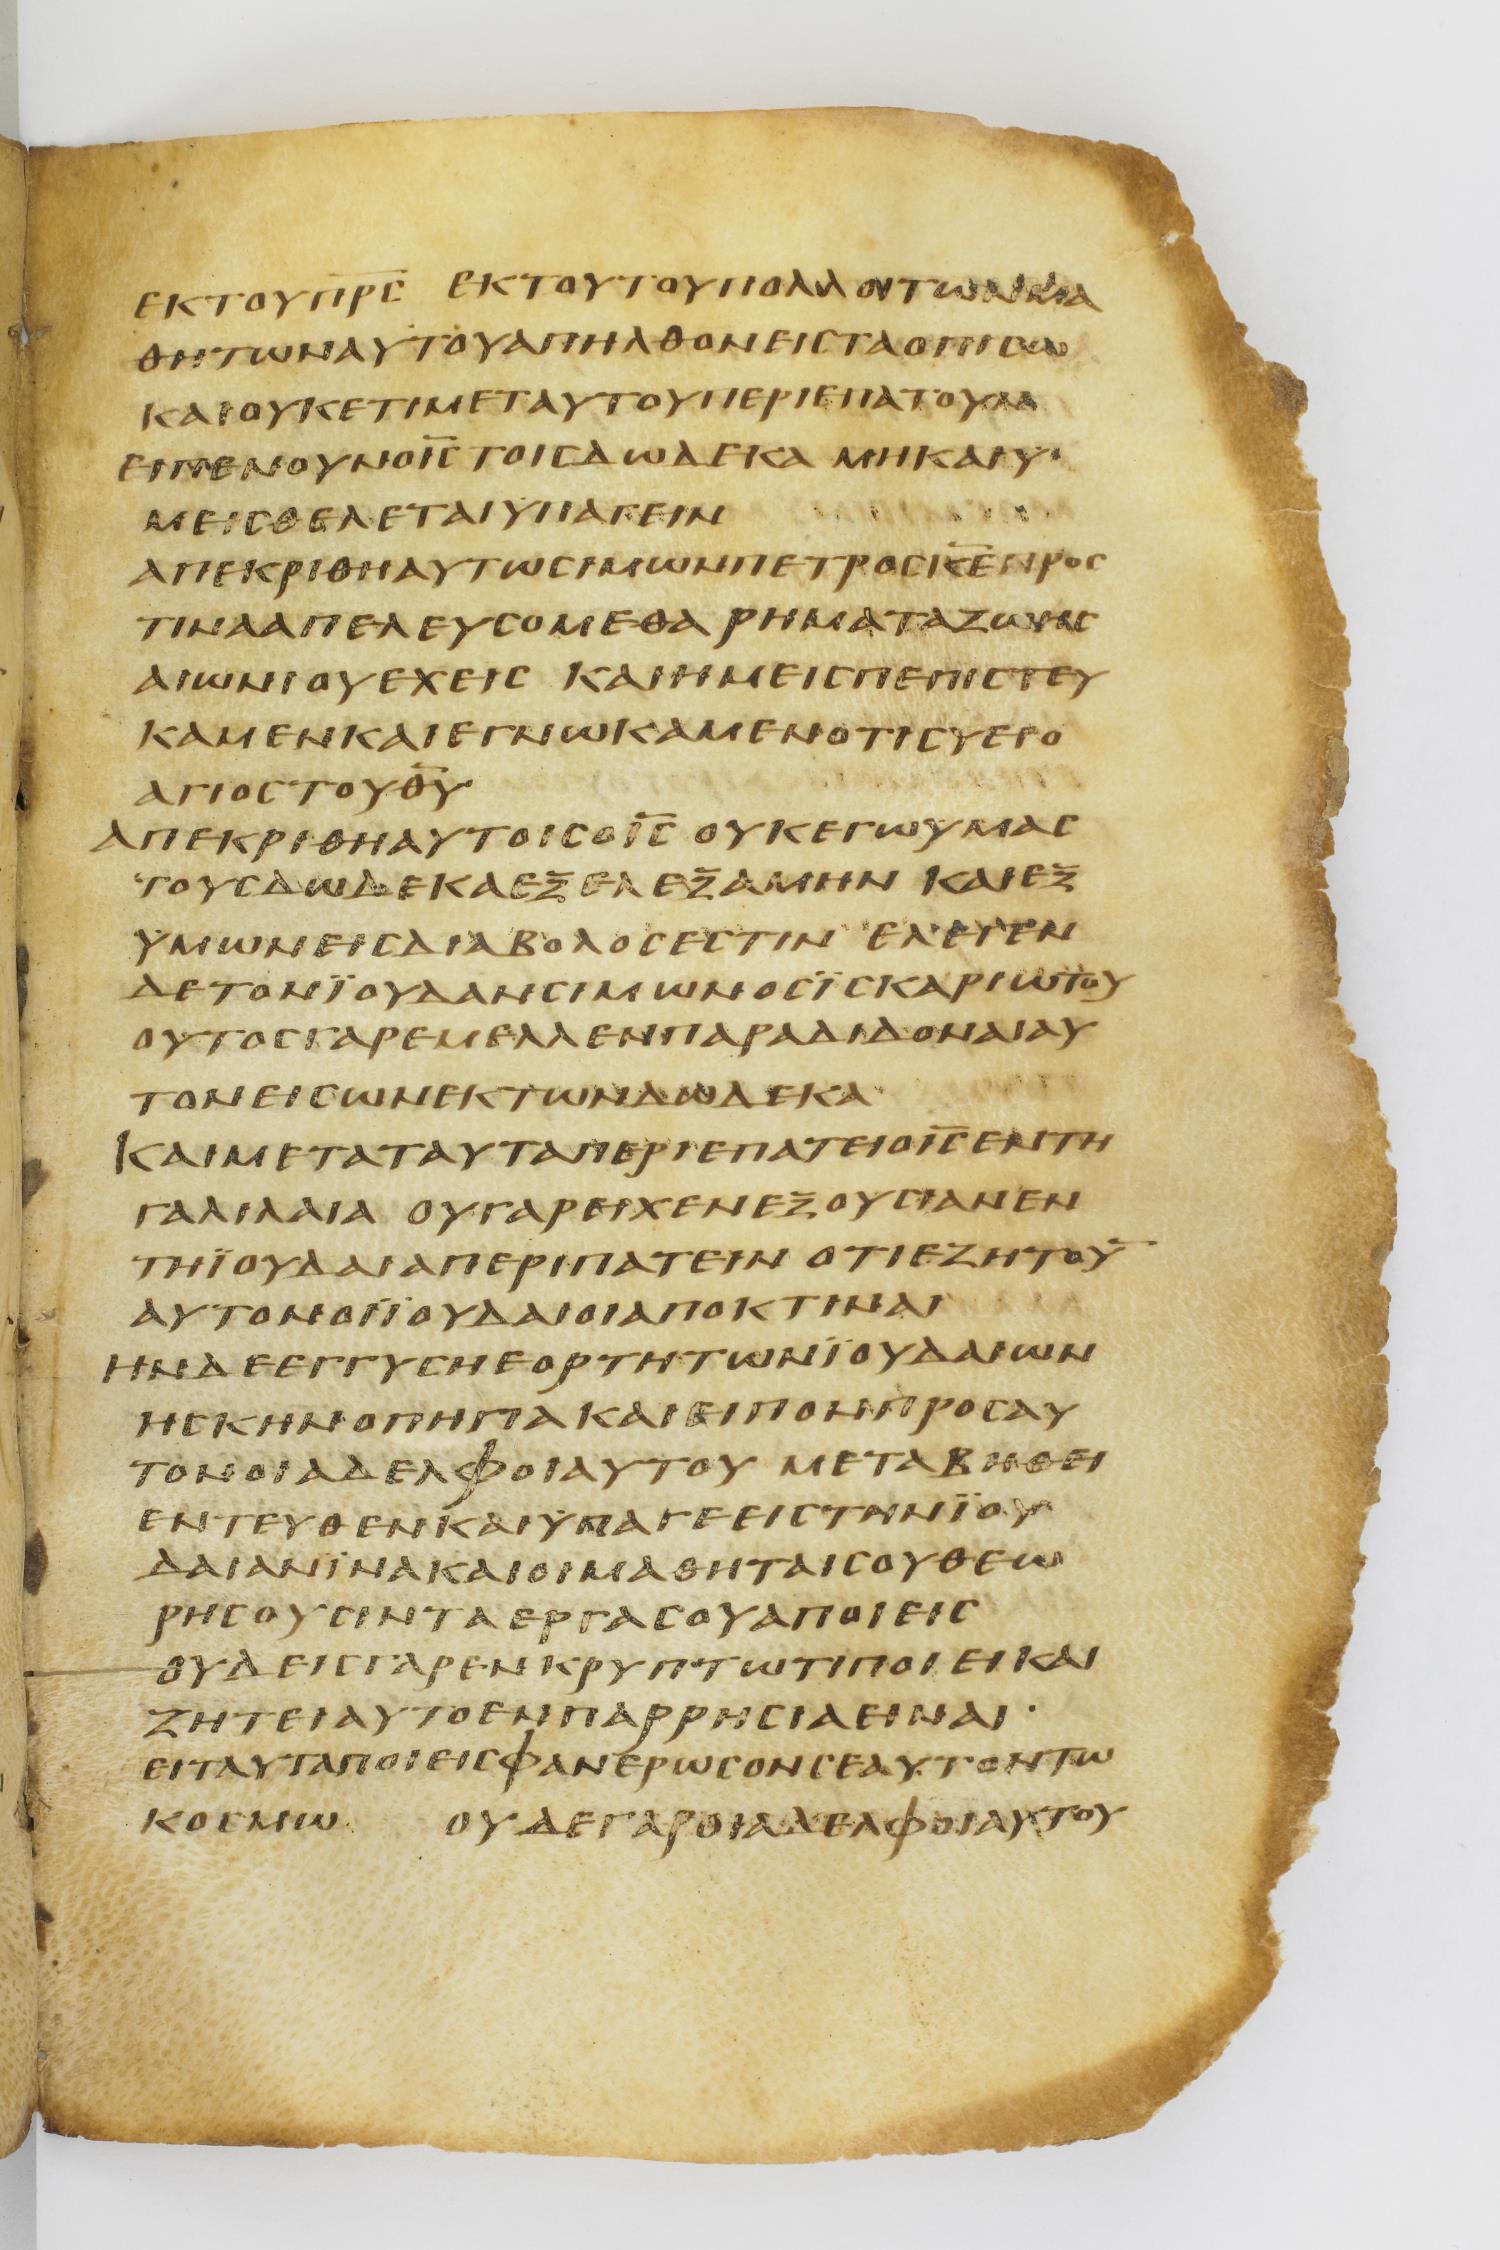 ΕΚΤΟΥΠ̅Ρ̅Ϲ̅ ΕΚΤΟΥΤΟΥΠΟΛΛΟΙΤΩΝΜΑ
ΘΗΤΩΝΑΥΤΟΥΑΠΗΛΘΟΝΕΙϹΤΑΟΠΙϹΩ
ΚΑΙΟΥΚΕΤΙΜΕΤΑΥΤΟΥΠΕΡΙΕΠΑΤΟΥΝ
ΕΙΠΕΝΟΥΝΟΙ̅Ϲ̅ΤΟΙϹΔΩΔΕΚΑ ΜΗΚΑΙΫ
ΜΕΙϹΘΕΛΕΤΑΙΫΠΑΓΕΙΝ
ΑΠΕΚΡΙΘΗΑΥΤΩϹΙΜΩΝΠΕΤΡΟϹΚ̅Ε̅ΠΡΟϹ
ΤΙΝΑΑΠΕΛΕΥϹΟΜΕΘΑ ΡΗΜΑΤΑΖΩΗϹ
ΑΙΩΝΙΟΥΕΧΕΙϹ ΚΑΙΗΜΕΙϹΠΕΠΙϹΤΕΥ
ΚΑΜΕΝΚΑΙΕΓΝΩΚΑΜΕΝΟΤΙϹΥΕΙΟ
ΑΓΙΟϹΤΟΥΘ̅Υ̅
ΑΠΕΚΡΙΘΗΑΥΤΟΙϹΟΙ̅Ϲ̅ ΟΥΚΕΓΩΥΜΑϹ
ΤΟΥϹΔΩΔΕΚΑΕΞΕΛΕΞΑΜΗΝ ΚΑΙΕΞ
ΫΜΩΝΕΙϹΔΙΑΒΟΛΟϹΕϹΤΙΝ ΕΛΕΓΕΝ
ΔΕΤΟΝΪΟΥΔΑΝϹΙΜΩΝΟϹΪϹΚΑΡΙΩΤΟΥ
ΟΥΤΟϹΓΑΡΕΜΕΛΛΕΝΠΑΡΑΔΙΔΟΝΑΙΑΥ
ΤΟΝΕΙϹΩΝΕΚΤΩΝΔΩΔΕΚΑ
ΚΑΙΜΕΤΑΤΑΥΤΑΠΕΡΙΕΠΑΤΕΙΟΙ̅Ϲ̅ΕΝΤΗ
ΓΑΛΙΛΑΙΑ ΟΥΓΑΡΕΙΧΕΝΕΞΟΥϹΙΑΝΕΝ
ΤΗΪΟΥΔΑΙΑΠΕΡΙΠΑΤΕΙΝ ΟΤΙΕΖΗΤΟΥ̅
ΑΥΤΟΝΟΙΪΟΥΔΑΙΟΙΑΠΟΚΤΙΝΑΙ
ΗΝΔΕΕΓΓΥϹΗΕΟΡΤΗΤΩΝΪΟΥΔΑΙΩΝ
ΗϹΚΗΝΟΠΗΓΙΑ ΚΑΙΕΙΠΟΝΠΡΟϹΑΥ
ΤΟΝΟΙΑΔΕΛΦΟΙΑΥΤΟΥ ΜΕΤΑΒΗΘΕΙ
ΕΝΤΕΥΘΕΝΚΑΙΫΠΑΓΕΕΙϹΤΗΝΪΟΥ
ΔΑΙΑΝΪΝΑΚΑΙΟΙΜΑΘΗΤΑΙϹΟΥΘΕΩ
ΡΗϹΟΥϹΙΝΤΑΕΡΓΑϹΟΥΑΠΟΙΕΙϹ
ΟΥΔΕΙϹΓΑΡΕΝΚΡΥΠΤΩΤΙΠΟΙΕΙΚΑΙ
ΖΗΤΕΙΑΥΤΟΕΝΠΑΡΡΗϹΙΑΕΙΝΑΙ·
ΕΙΤΑΥΤΑΠΟΙΕΙϹΦΑΝΕΡΩϹΟΝϹΕΑΥΤΟΝΤΩ
ΚΟϹΜΩ ΟΥΔΕΓΑΡΟΙΑΔΕΛΦΟΙΑΥΤΟΥ